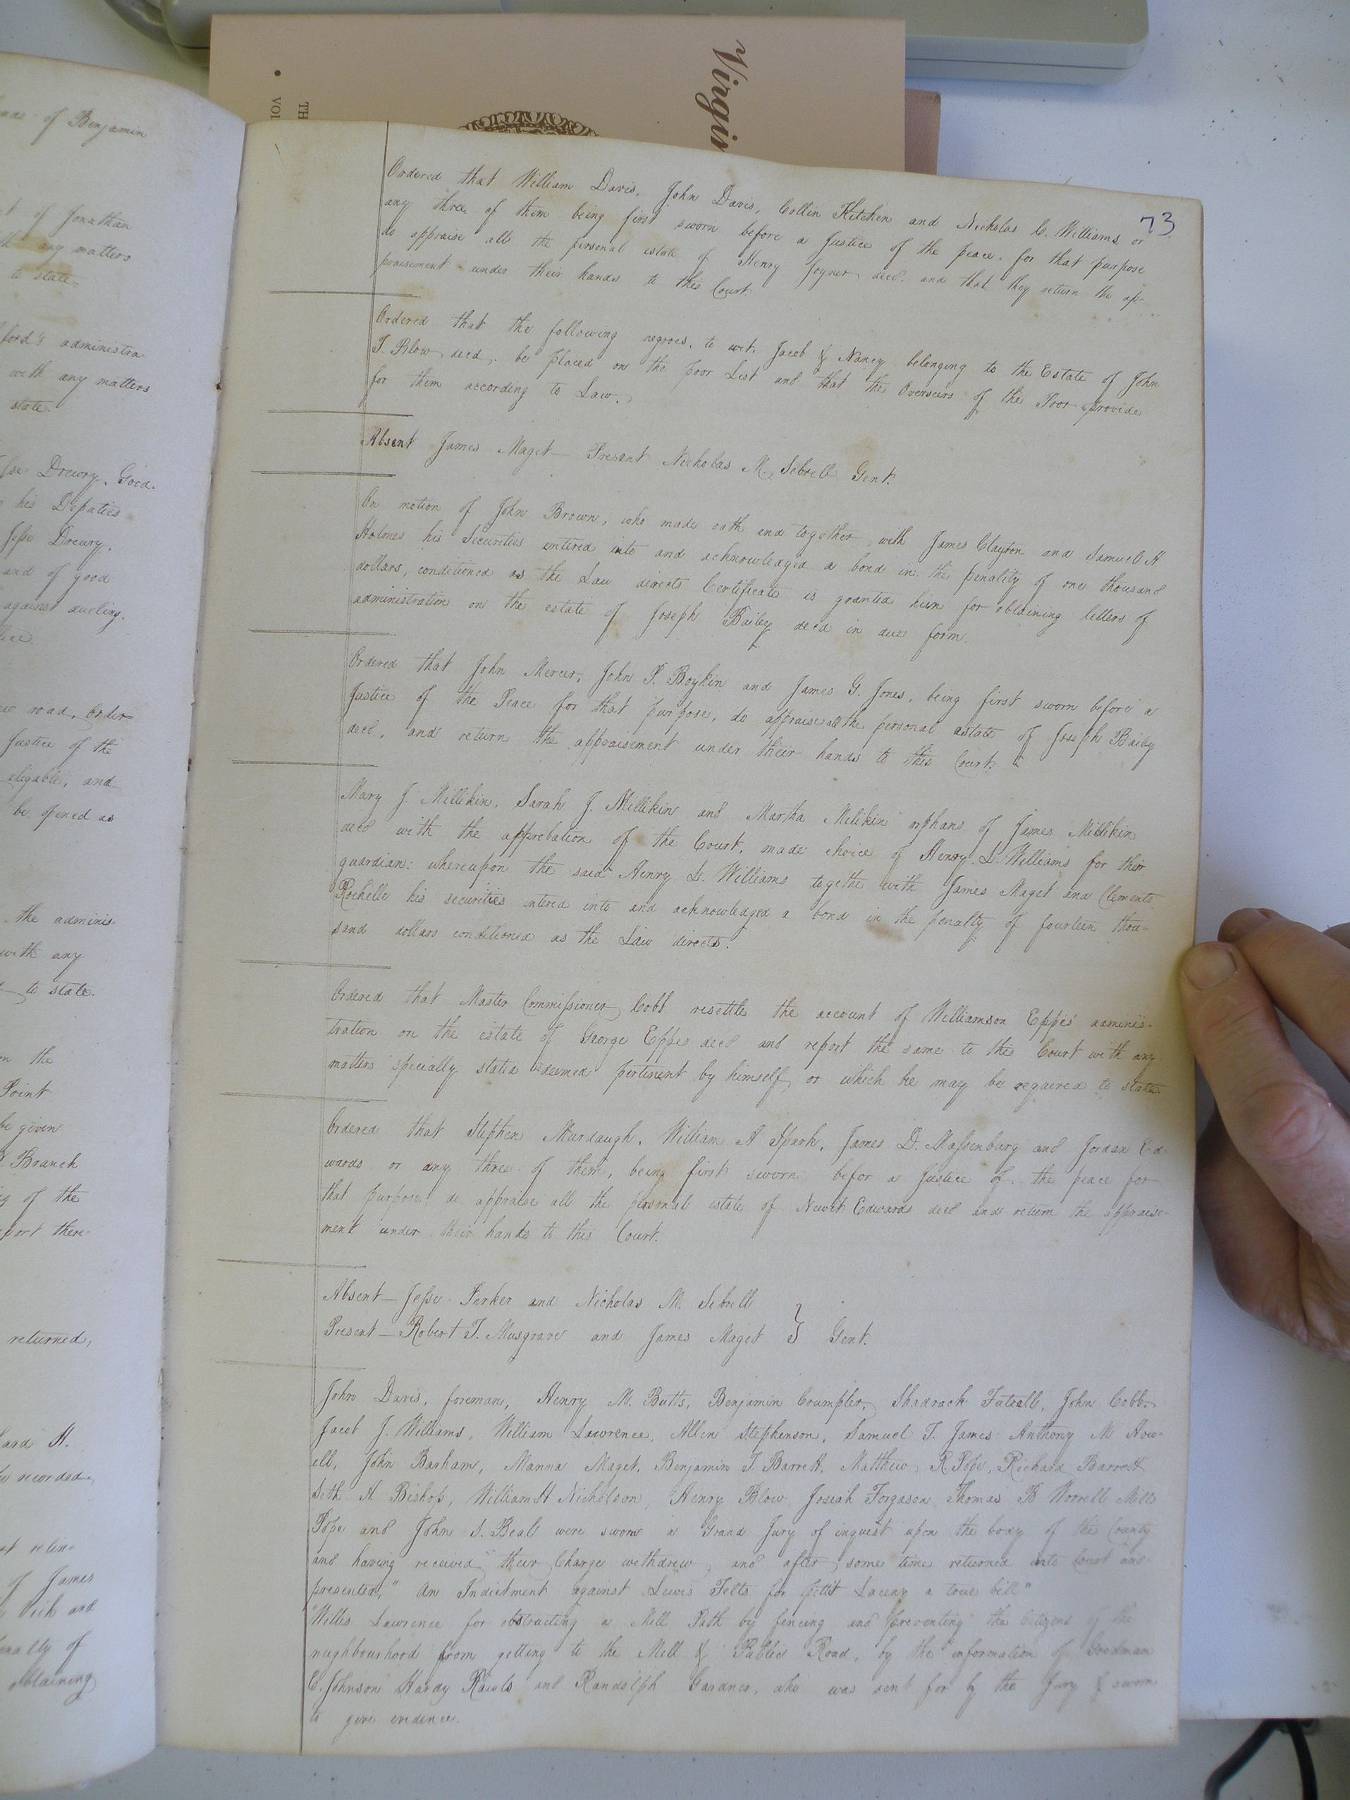 Virgin
TH
VOL
73
of Benjamin
of Jonathan
any matters
to state
ford's administra
with any matters
state
Drewry, Good.
his Deputies
Jesse Drewry,
and of good
against dueling.
road, order
Justice of the
eligable, and
be opened as
the adminis
with any
to state.
on the
Point
be given
Branch
of the
port there
returned,
H.
recorded,
of James
Vick and
penalty of
obtaining
Ordered that William Davis, John Davis, Collin Kitchen and Nicholas C. Williams or
any three of them being first sworn before a Justice of the peace for that purpose
do appraise all the personal estate of Henry Joyner decd. and that they return the ap-
praisement under their hands to this Court.
Ordered that the following negroes, to wit, Jacob & Nancy belonging to the Estate of John
T. Blow decd, be placed on the poor List and that the Overseers of the Poor provide
for them according to Law.
Absent James Maget Present Nicholas M. Sebrell Gent.
On motion of John Brown, who made oath and together with James Clayton and Samuel H
Holmes his Securities entered into and acknowledged a bond in the penality of one thousand
dollars, conditioned as the Law directs Certificate is granted him for obtaining letters of
administration on the estate of Joseph Bailey decd in due form.
Ordered that John Mercer, John P. Boykin and James G. Jones, being first sworn before a
Justice of the Peace for that purpose, do appraise all the personal estate of Joseph Bailey
decd, and return the appraisement under their hands to this Court.
Mary J. Millikin, Sarah J. Millikin and Martha Milikin orphans of James Millikin
decd with the approbation of the Court, made choice of Henry L. Williams for their
guardian: whereupon the said Henry L. Williams togethe with James Maget and Clements
Rochelle his securities entered into and acknowledged a bond in the penalty of fourteen thou-
sand dollars conditioned as the Law directs.
Ordered that Master Commissioner Cobb resettle the account of Williamson Eppes' adminis-
tration on the estate of George Eppes decd and report the same to this Court with any
matters specially stated deemed pertinent by himself, or which he may be required to state
Ordered that Stephen Murdaugh, William A Spark, James D. Massenburg and Jordan Ed-
wards or any three of them, being first sworn befor a Justice of the peace for
that purpose do appraise all the personal estate of Newit Edwards decd and return the appraise-
ment under their hands to this Court.
Absent — Jesse Parker and Nicholas M. Sebrell
Present — Robert T. Musgrave and James Maget } Gent.
John Davis, foreman, Henry M. Butts, Benjamin Crumpler, Shadrach Futrell, John Cobb,
Jacob J. Williams, William Lawrence, Allen Stephenson, Samuel T. James Anthony M How-
ell, John Barham, Manna Maget, Benjamin T. Barrett, Matthew R. Pope, Richard Barrett
Seth H Bishop, William H Nicholson, Henry Blow Josiah Forgason Thomas B Worrell Mills
Pope and John S. Beale were sworn a Grand Jury of inquest upon the body of the County
and having received their Charge withdrew, and after some time returned into Court and
presented, "An Indictment against Lewis Felts for Petit Larceny a true bill"
"Willis Lawrence for obstructing a Mill Path by fencing and preventing the Citizens of the
neighbourhood from getting to the Mill & Public Road, by the information of Goodman
C. Johnson Hardy Raiols and Randolph Gardner, who was sent for by the Jury & sworn
to give evidence.